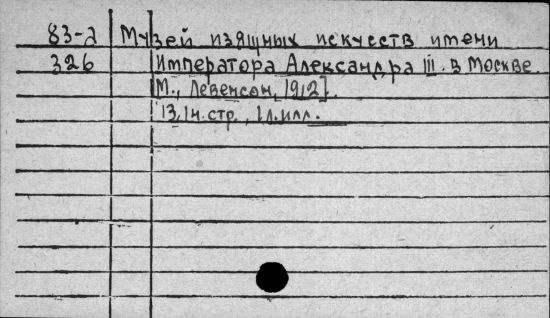 83-2 Музей изящных искусств имени
326 Императора Александра III в Москве.
[М., Левенсон, 1912].
13, 1н.стр., 1 л.илл.